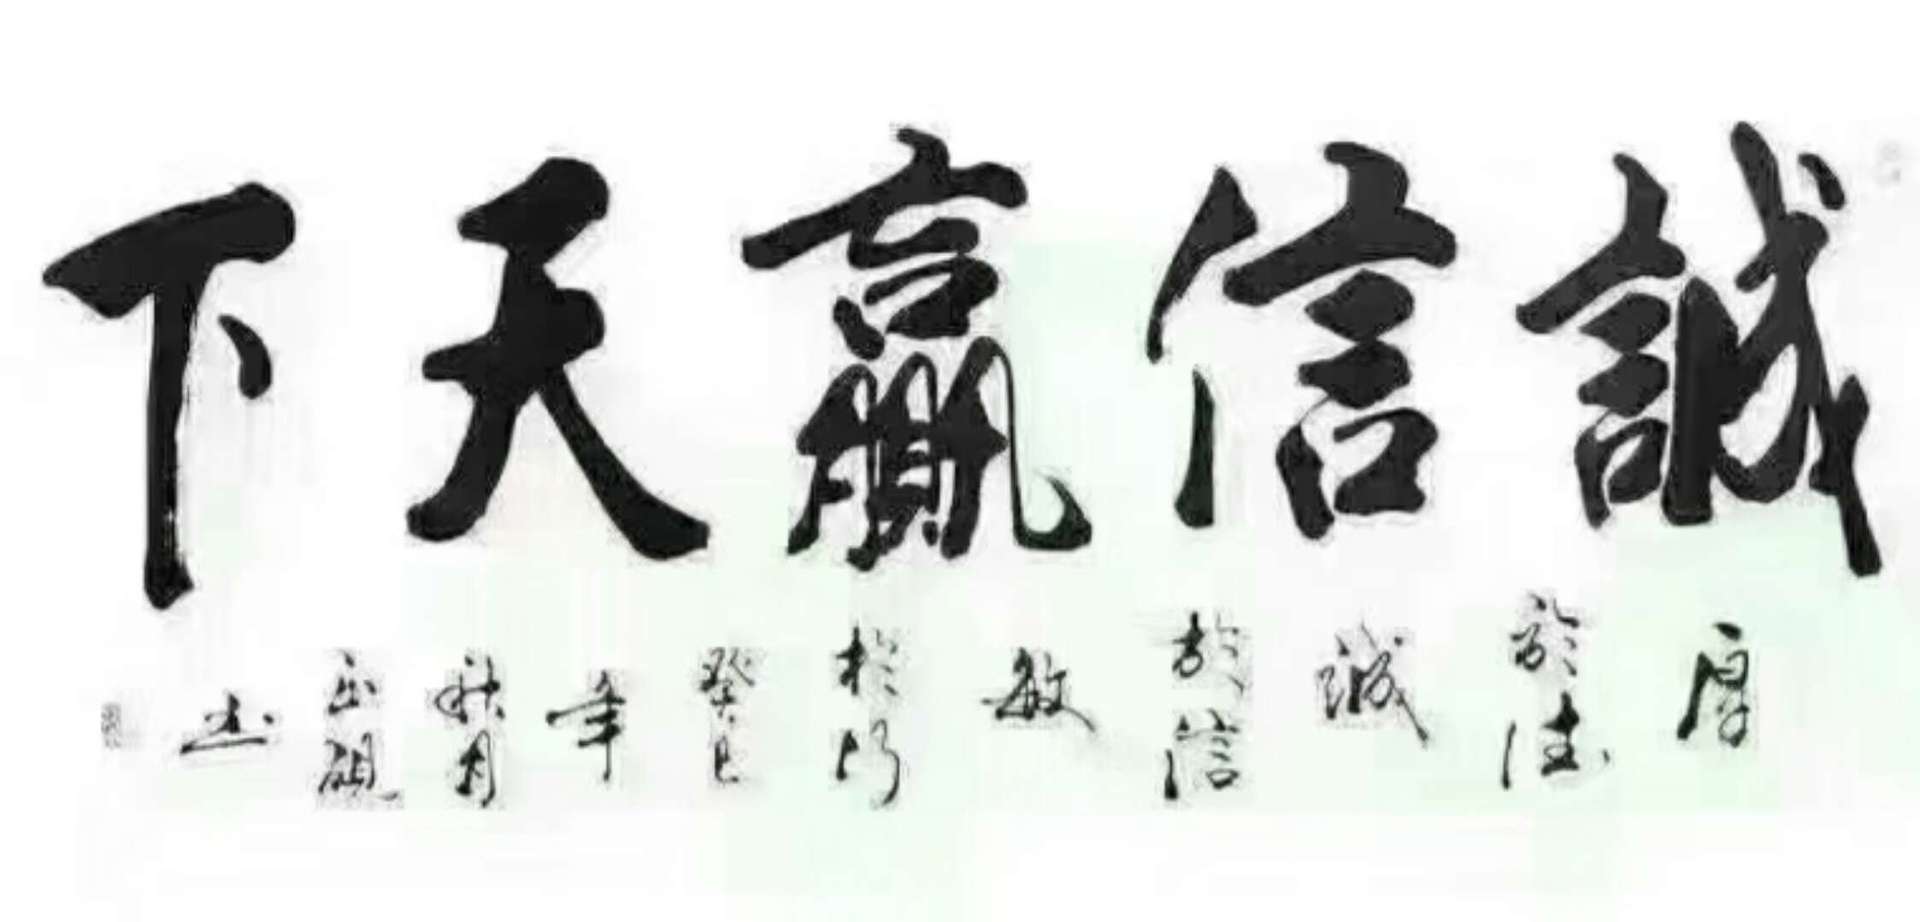 誠信贏天下
厚於德誠於信敏於行癸巳年秋月玉硯书